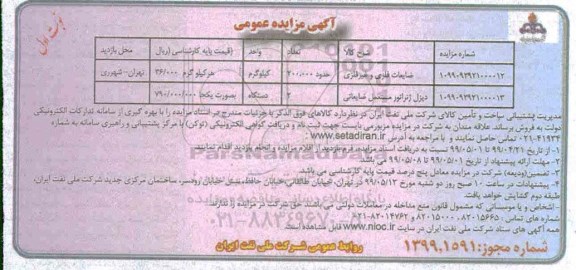 نوبت اول
آگهی مزایده عمومی
شماره مزایده شرح کالا تعداد واحد (قیمت پایه کارشناسی (ریال محل بازدید
۱۰۹۹۰۹۳۹۲۱۰۰۰۰۱۲ ضایعات فلزی و غیرفلزی حدود ۲۰۰،۰۰۰ کیلوگرم هر کیلو گرم ۳۶/۰۰۰ تهران- شهرری
۱۰۹۹۰۹۳۹۲۱۰۰۰۰۱۳ دیزل ژنراتور مستعمل ضایعاتی ۲ دستگاه بصورت یکجا ۷۹۰/۰۰۰/۰۰۰
مدیریت پشتیبانی ساخت و تأمین کالای شرکت ملی نفت ایران در نظر دارد کالاهای فوق الذکر با جزئیات مندرج در اسناد مزایده را با بهره گیری از سامانه تدارکات الکترونیکی
دولت به فروش برساند. علاقه مندان به شرکت در مزایده مزبور می بایست جهت ثبت نام و دریافت گواهی الکترونیکی (توکن) با مرکز پشتیبانی و راهبری سامانه به شماره
۴۱۹۳۴-۰۲۱ تماس حاصل نمایند و با مراجعه به آدرس www.setadiran.ir
۱- از تاریخ ۹۹/۰۴/۲۱ تا ۹۹/۰۵/۰۱ نسبت به دریافت اسناد مزایده، فرم بازدید از اقلام مزایده و انجام بازدید اقدام نمایند.
۲- مهلت ارائه پیشنهاد از تاریخ ۹۹/۰۵/۰۱ تا ۹۹/۰۵/۰۸ می باشد
۳- تضمین(ودیعه) شرکت در مزایده معادل پنج درصد قیمت پایه کارشناسی می باشد.
۴- پیشنهادات در ساعت ۱۰ صبح روز دو شنبه مورخ ۹۹/۰۵/۱۳ در تهران، خیابان طالقانی خیابان حافظ، نبش خیابان رودسر، ساختمان مرکزی جدید شرکت ملی نفت ایران،
طبقه دوم گشایش خواهد یافت.
-اشخاص و یا موسساتی که مشمول قانون منع مداخله در معاملات دولتی می باشند، حق شرکت در مزایده را ندارند.
شماره های تماس: ۸۲۰۱۵۶۶۵، ۸۲۰۱۵۰۰۰ و ۸۲۰۱۴۷۶۲-۰۲۱
همه آگهی های ستاد شرکت ملی نفت ایران در سایت www.nioc.ir قابل مشاهده است.
شماره مجوز: ۱۳۹۹.۱۵۹۱ روابط عمومی شرکت ملی نفت ایران
ParsNamadData
۰۲۱-۸۸۳۴۹۶۷۰